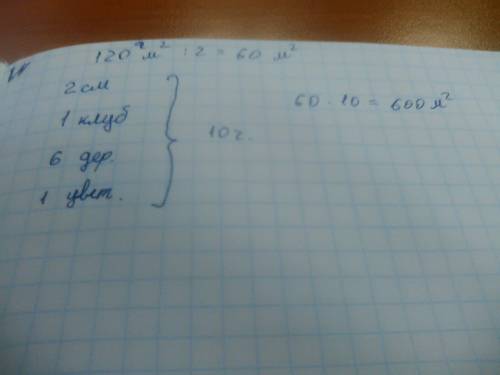 120 м² : 2 = 60 м²
2 см
1 клуб
6 дер.
1 цвет.
10 ч.
60 · 10 = 600 м²